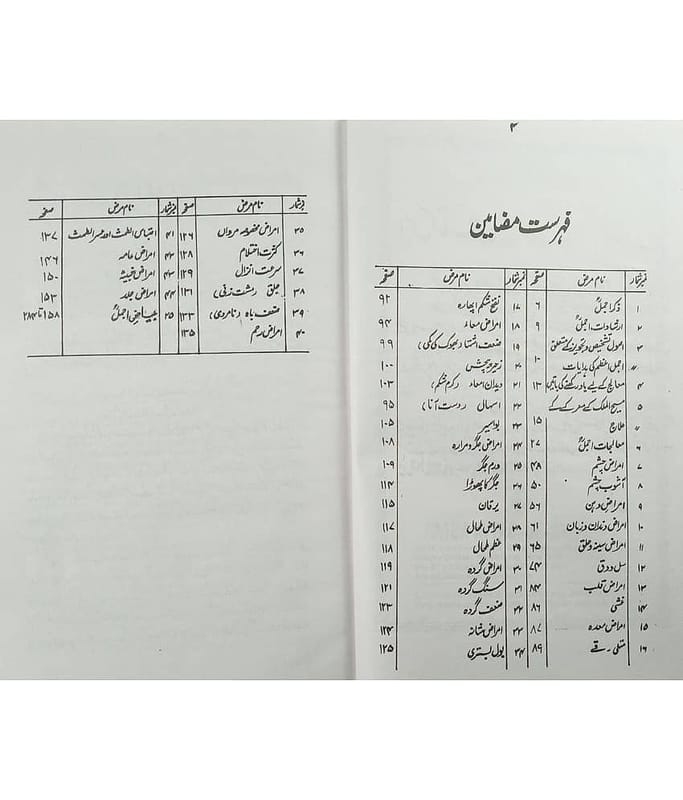 ۴
فہرست مضامین
نمبر شمار نام مرض صفحہ نمبر شمار نام مرض صفحہ
۱ ذکر اجملؒ ۶ ۱۷ نفخ شکم اپھارہ ۹۲
۲ ارشادات اجملؒ ۹ ۱۸ امراض معاء ۹۴
۳ اصول تشخیص و تجویز کے متعلق ۱۹ ضعف اشتہا (بھوک کی کمی) ۹۹
〃 اجمل اعظم کی ہدایات ۱۰ ۲۰ زحیر و پیچش ۱۰۰
۴ معالج کے لیے یاد رکھنے کی باتیں ۱۳ ۲۱ دیدان امعاء (کرم شکم) ۱۰۳
۵ مسیح الملک کے معرکے کے ۲۲ اسہال (دست آنا) ۹۵
〃 علاج ۱۵ ۲۳ بواسیر ۱۰۵
۶ معالجات اجملؒ ۲۷ ۲۴ امراض جگر و مرارہ ۱۰۸
۷ امراض چشم ۴۸ ۲۵ ورم جگر ۱۰۹
۸ آشوب چشم ۵۰ ۲۶ جگر کا پھوڑا ۱۱۴
۹ امراض دہن ۵۶ ۲۷ یرقان ۱۱۵
۱۰ امراض دندان و زبان ۶۱ ۲۸ امراض طحال ۱۱۷
۱۱ امراض سینہ و حلق ۶۵ ۲۹ عظم طحال ۱۱۸
۱۲ سل و دق ۷۴ ۳۰ امراض گردہ ۱۱۹
۱۳ امراض قلب ۸۴ ۳۱ سنگ گردہ ۱۲۱
۱۴ غشی ۸۶ ۳۲ ضعف گردہ ۱۲۳
۱۵ امراض معدہ ۸۷ ۳۳ امراض مثانہ ۱۲۴
۱۶ متلی ۔ قے ۸۹ ۳۴ بول بستری ۱۲۵
نمبر شمار نام مرض صفحہ نمبر شمار نام مرض صفحہ
۳۵ امراض مخصوصہ مرداں ۱۲۶ ۴۱ احتباس الطمث اور عسر الطمث ۱۳۷
۳۶ کثرت احتلام ۱۲۸ ۴۲ امراض عامہ ۱۴۶
۳۷ سرعت انزال ۱۲۹ ۴۳ امراض خبیثہ ۱۵۰
۳۸ جلق (مشت زنی) ۱۳۱ ۴۴ امراض جلد ۱۵۳
۳۹ ضعف باہ (نامردی) ۱۳۳ ۴۵ بیاض اجملؒ ۱۵۸ تا ۲۸۴
۴۰ امراض رحم ۱۳۵